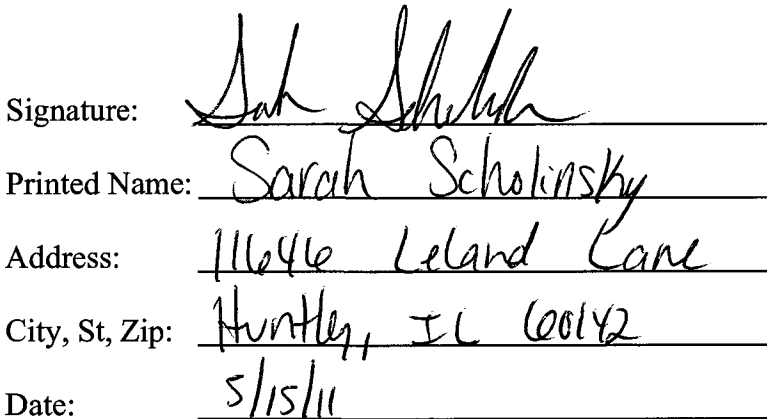 Signature:
Printed Name: Sarah Scholinsky
Address: 11646 Leland Lane
City, St, Zip: Huntley, IL 60142
Date: 5/15/11